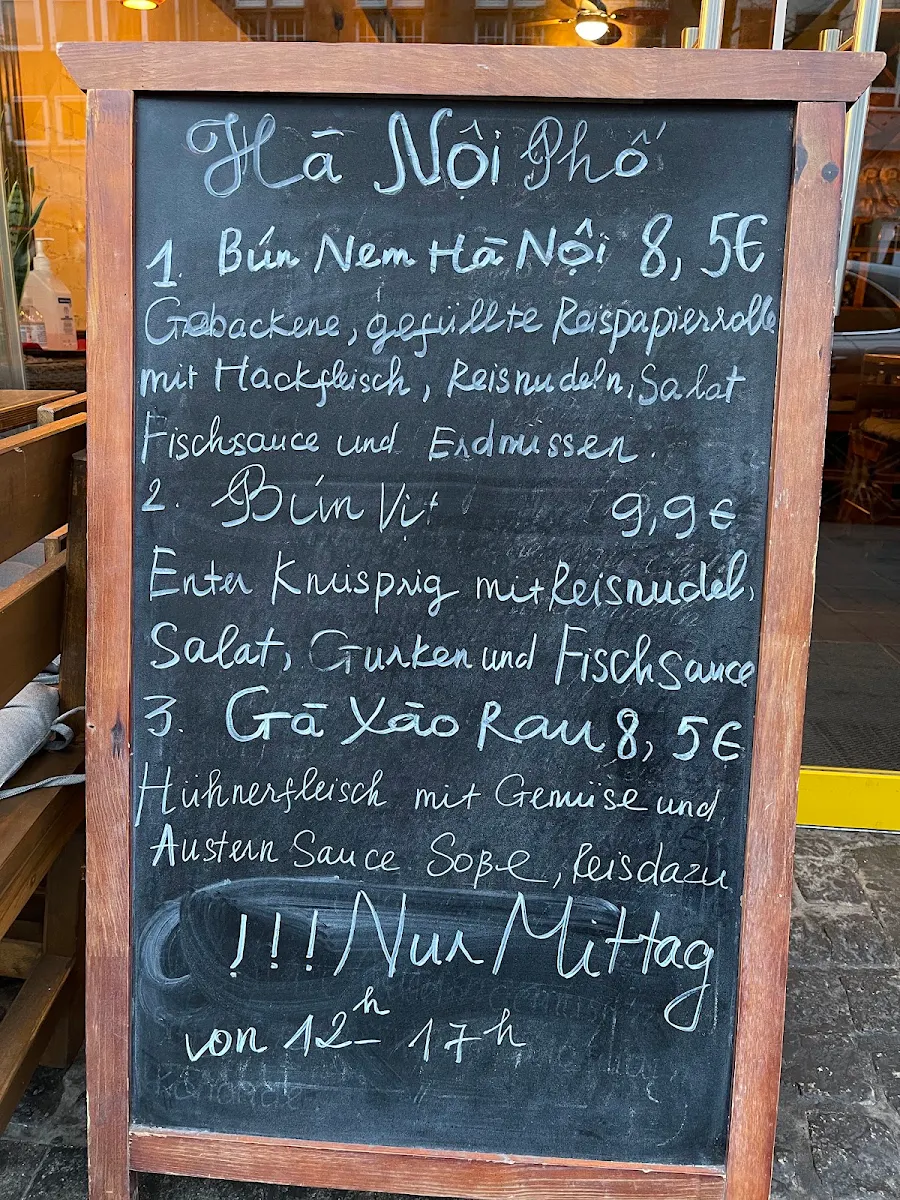 Hā Nội Phố
1. Bún Nem Hā Nội 8,5€
Gebackene, gefüllte Reispapierrolle
mit Hackfleisch, Reisnudeln, Salat
Fischsauce und Erdnüssen.
2. Bún Vịt 9,9€
Enter Knüsprig mit Reisnudel,
Salat, Gurken und Fischsauce
3. Gā Xāo Rau 8,5€
Hühnerfleisch mit Gemüse und
Austern Sauce Soße, Reis dazu
!!! Nur Mittag
von 12h - 17h